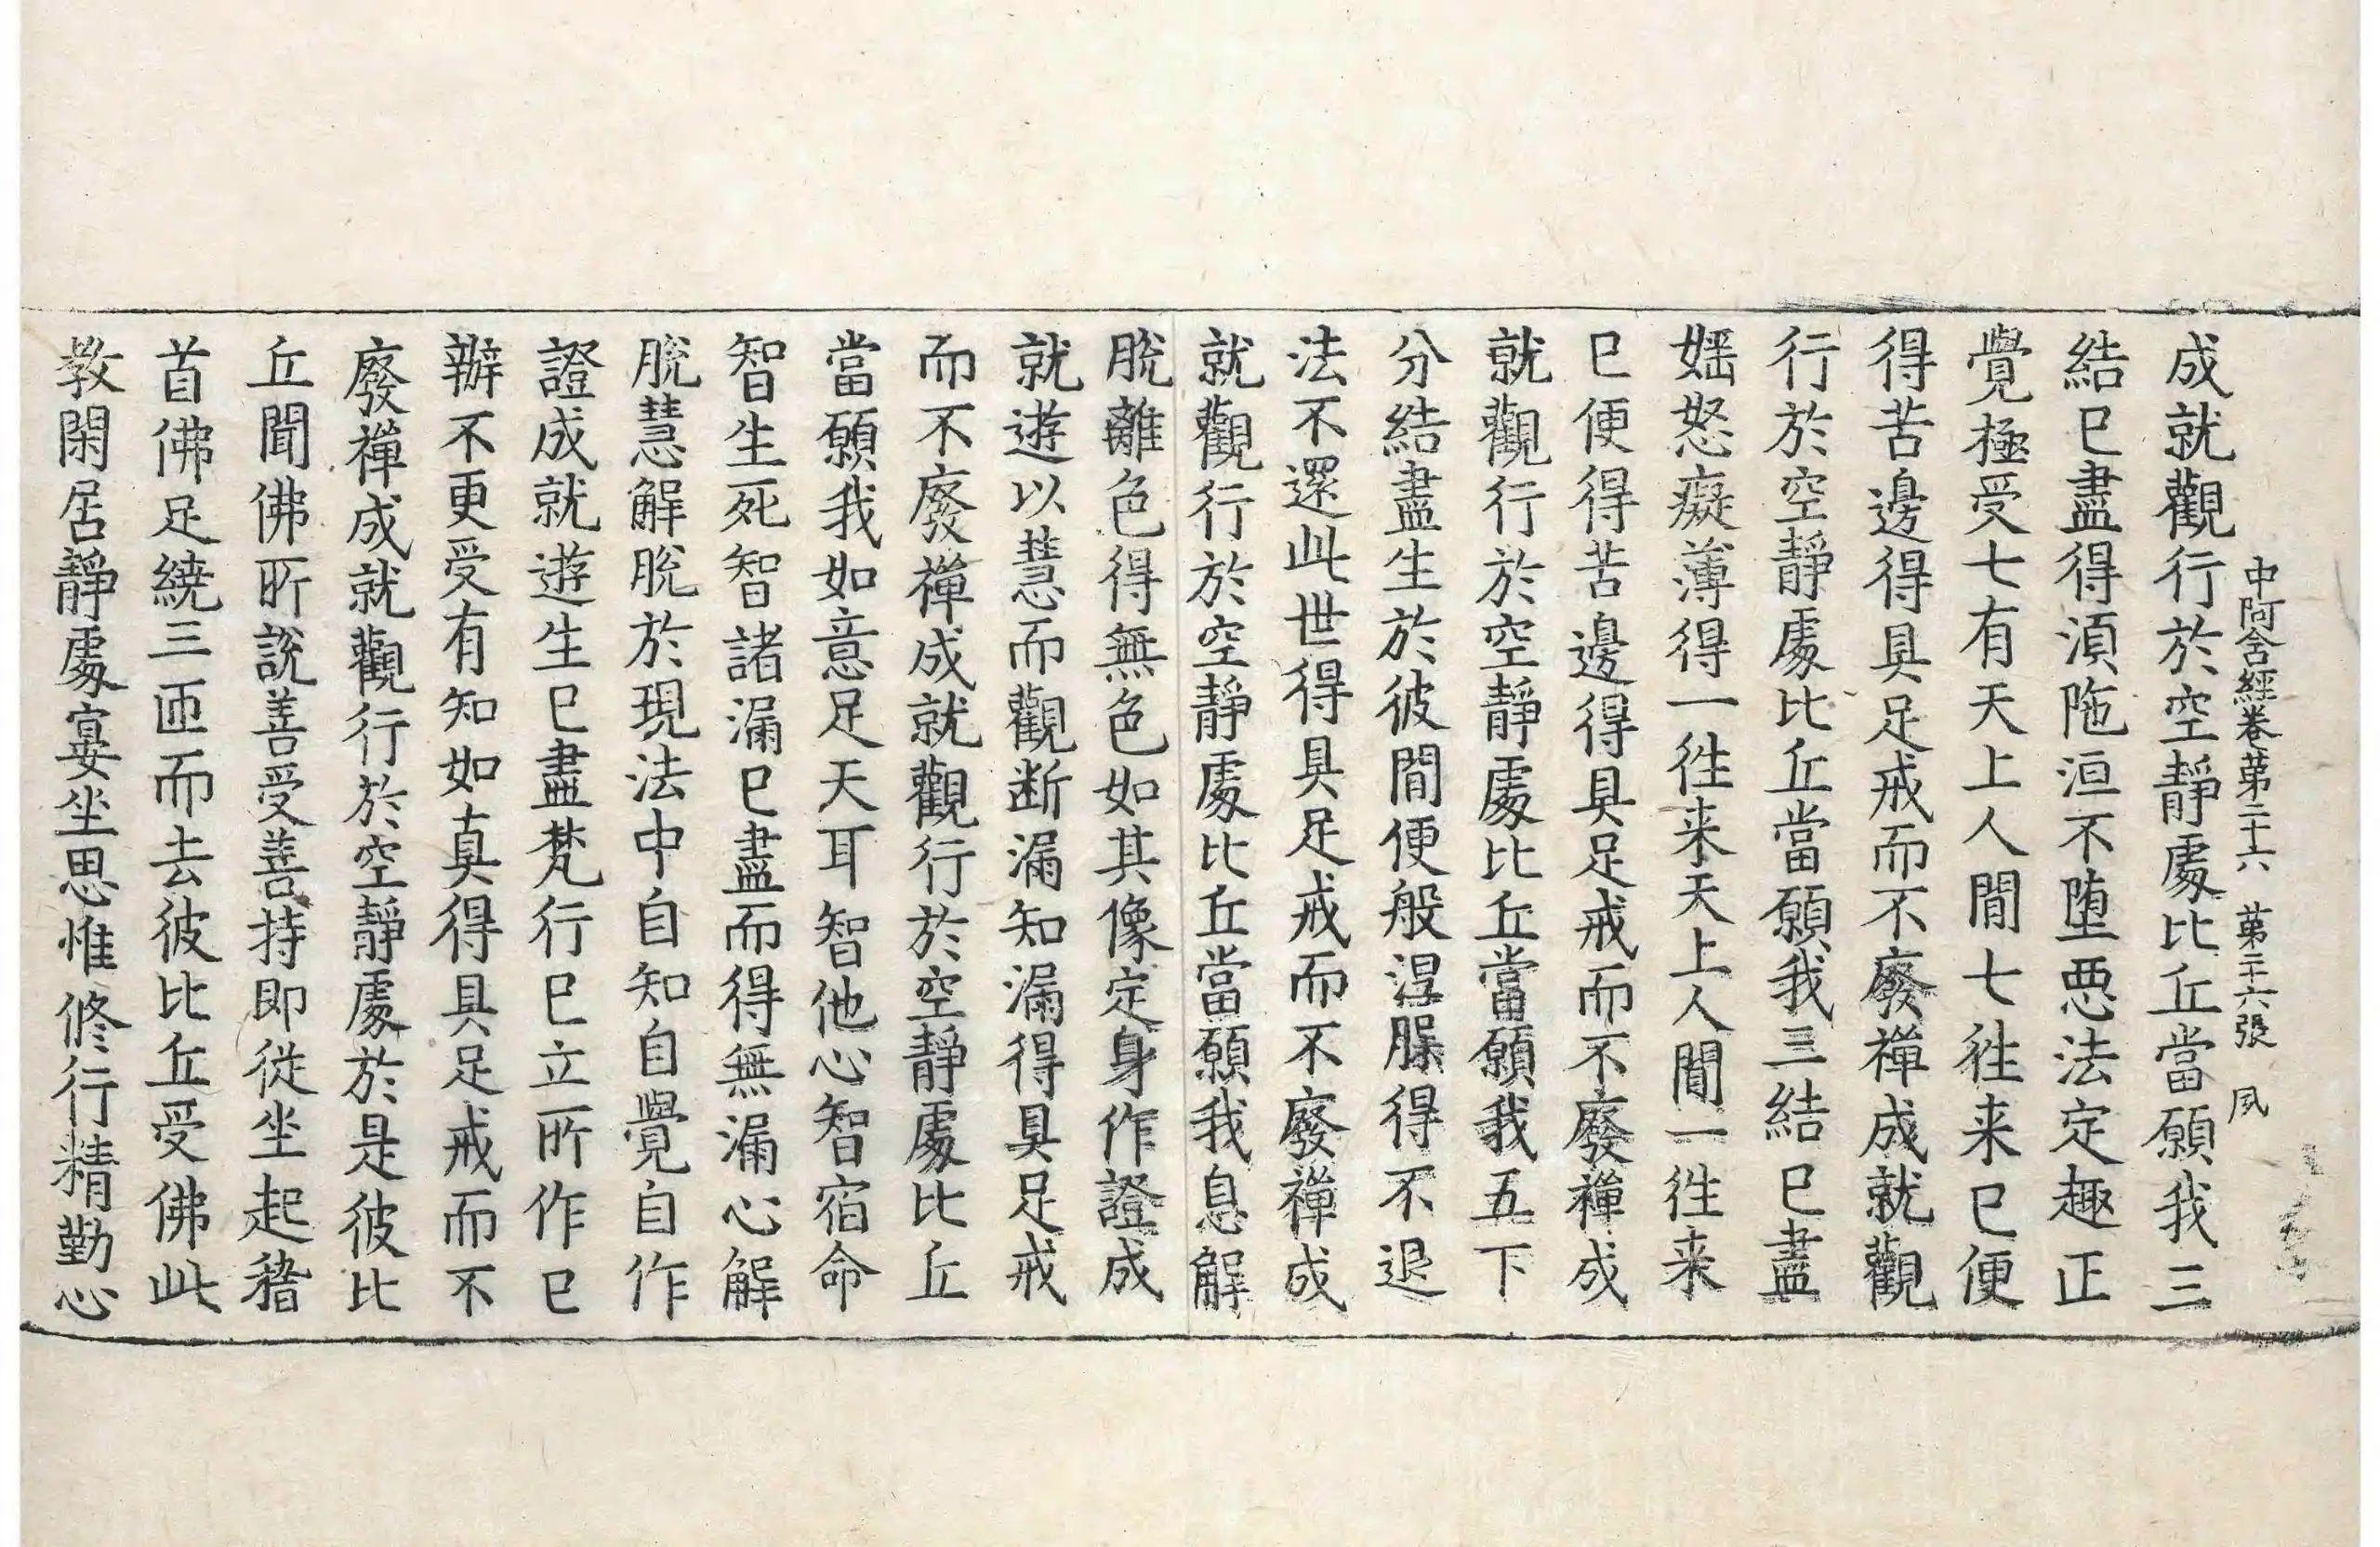 中阿含經卷第二十六 第二十六張 夙
成就觀行於空靜處比丘當願我三
結已盡得湏陁洹不墮惡法定趣正
覺極受七有天上人間七徃来已便
得苦邊得具足戒而不廢禪成就觀
行於空靜處比丘當願我三結已盡
婬怒癡薄得一徃来天上人間一徃来
已便得苦邊得具足戒而不廢禪成
就觀行於空靜處比丘當願我五下
分結盡生於彼間便般涅槃得不退
法不還此世得具足戒而不廢禪成
就觀行於空靜處比丘當願我息解
脫離色得無色如其像定身作證成
就遊以慧而觀断漏知漏得具足戒
而不廢禪成就觀行於空靜處比丘
當願我如意足天耳智他心智宿命
智生死智諸漏已盡而得無漏心解
脫慧解脫於現法中自知自覺自作
證成就遊生已盡梵行已立所作已
辦不更受有知如真得具足戒而不
廢禪成就觀行於空靜處於是彼比
丘聞佛所說善受善持即從坐起稽
首佛足繞三匝而去彼比丘受佛此
教閑居靜處宴坐思惟修行精勤心